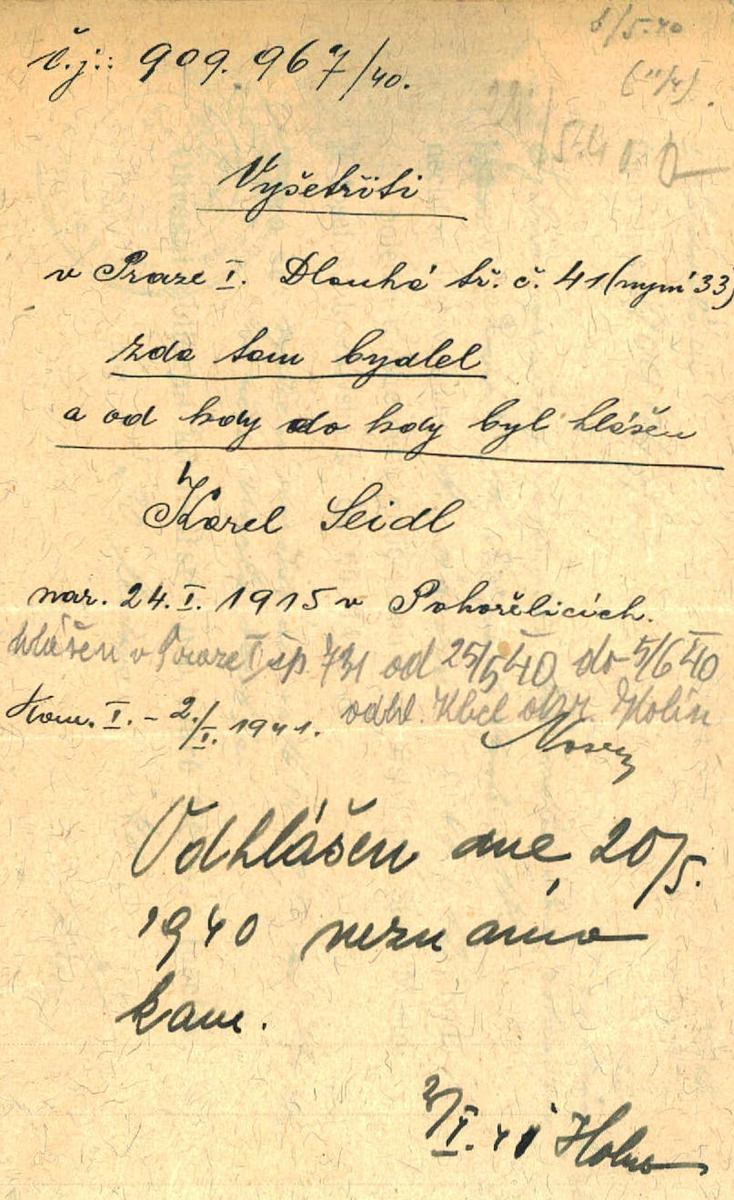 5/5.40
č.j.: 909.967/40.
Vyšetřiti
v Praze I. Dlouhá tř. č. 41 (nyní 33)
zda tam bydlel
a od kdy do kdy byl hlášen
Karel Seidl
nar. 24.I.1915 v Pohořelicích.
hlášen v Praze I čp 731 od 25/5 40 do 5/6 40
odhl. Kbel okr. Kolín
Kom. I. - 2./I. 1941.
Odhlášen dne 20/5.
1940 neznámo
kam.
2/I. 41